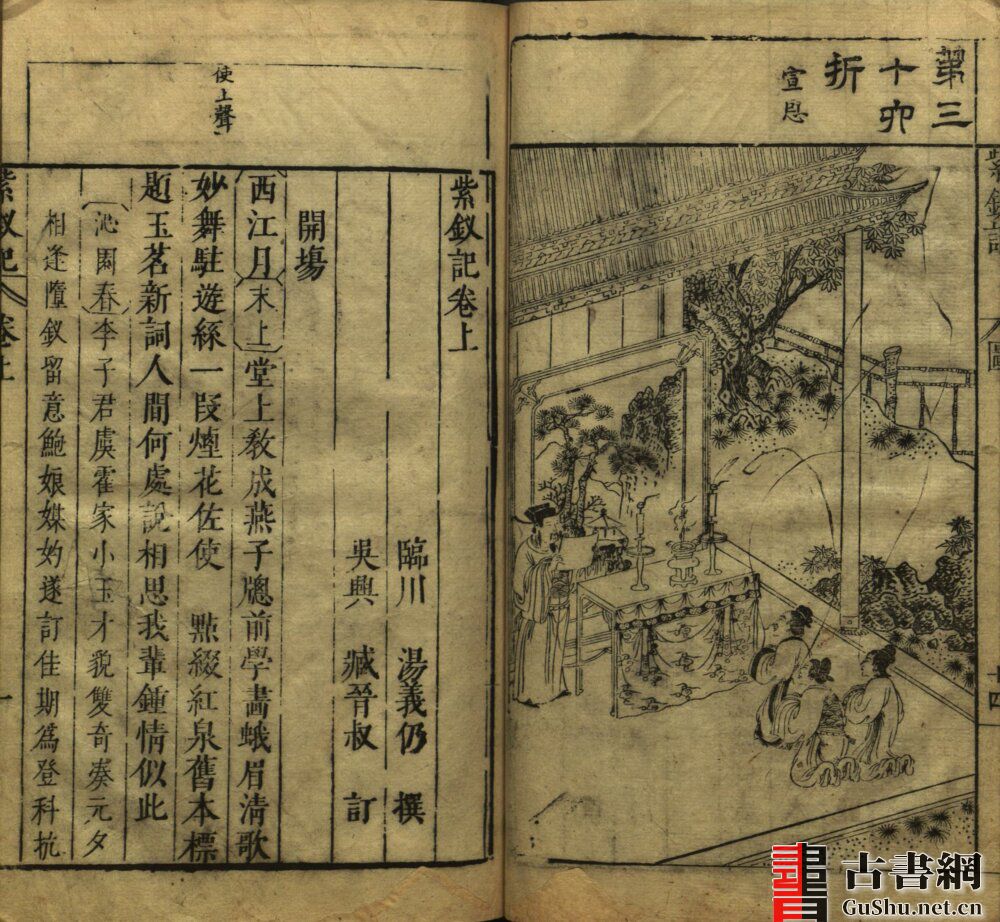 第三
十六
折
宣恩
紫釵記
圖
十四
紫釵記卷上
臨川 湯義仍 撰
吳興 臧晉叔 訂
開場
使上聲
西江月末上堂上教成燕子牕前學畫蛾眉清歌
妙舞駐遊絲一段煙花佐使 點綴紅泉舊本標
題玉茗新詞人間何處說相思我輩鍾情似此
沁園春李子君虞霍家小玉才貌雙奇湊元夕
相逢墮釵留意鮑娘媒妁遂訂佳期為登科抗
紫釵記
卷上
一
古書網
GuShu.net.cn